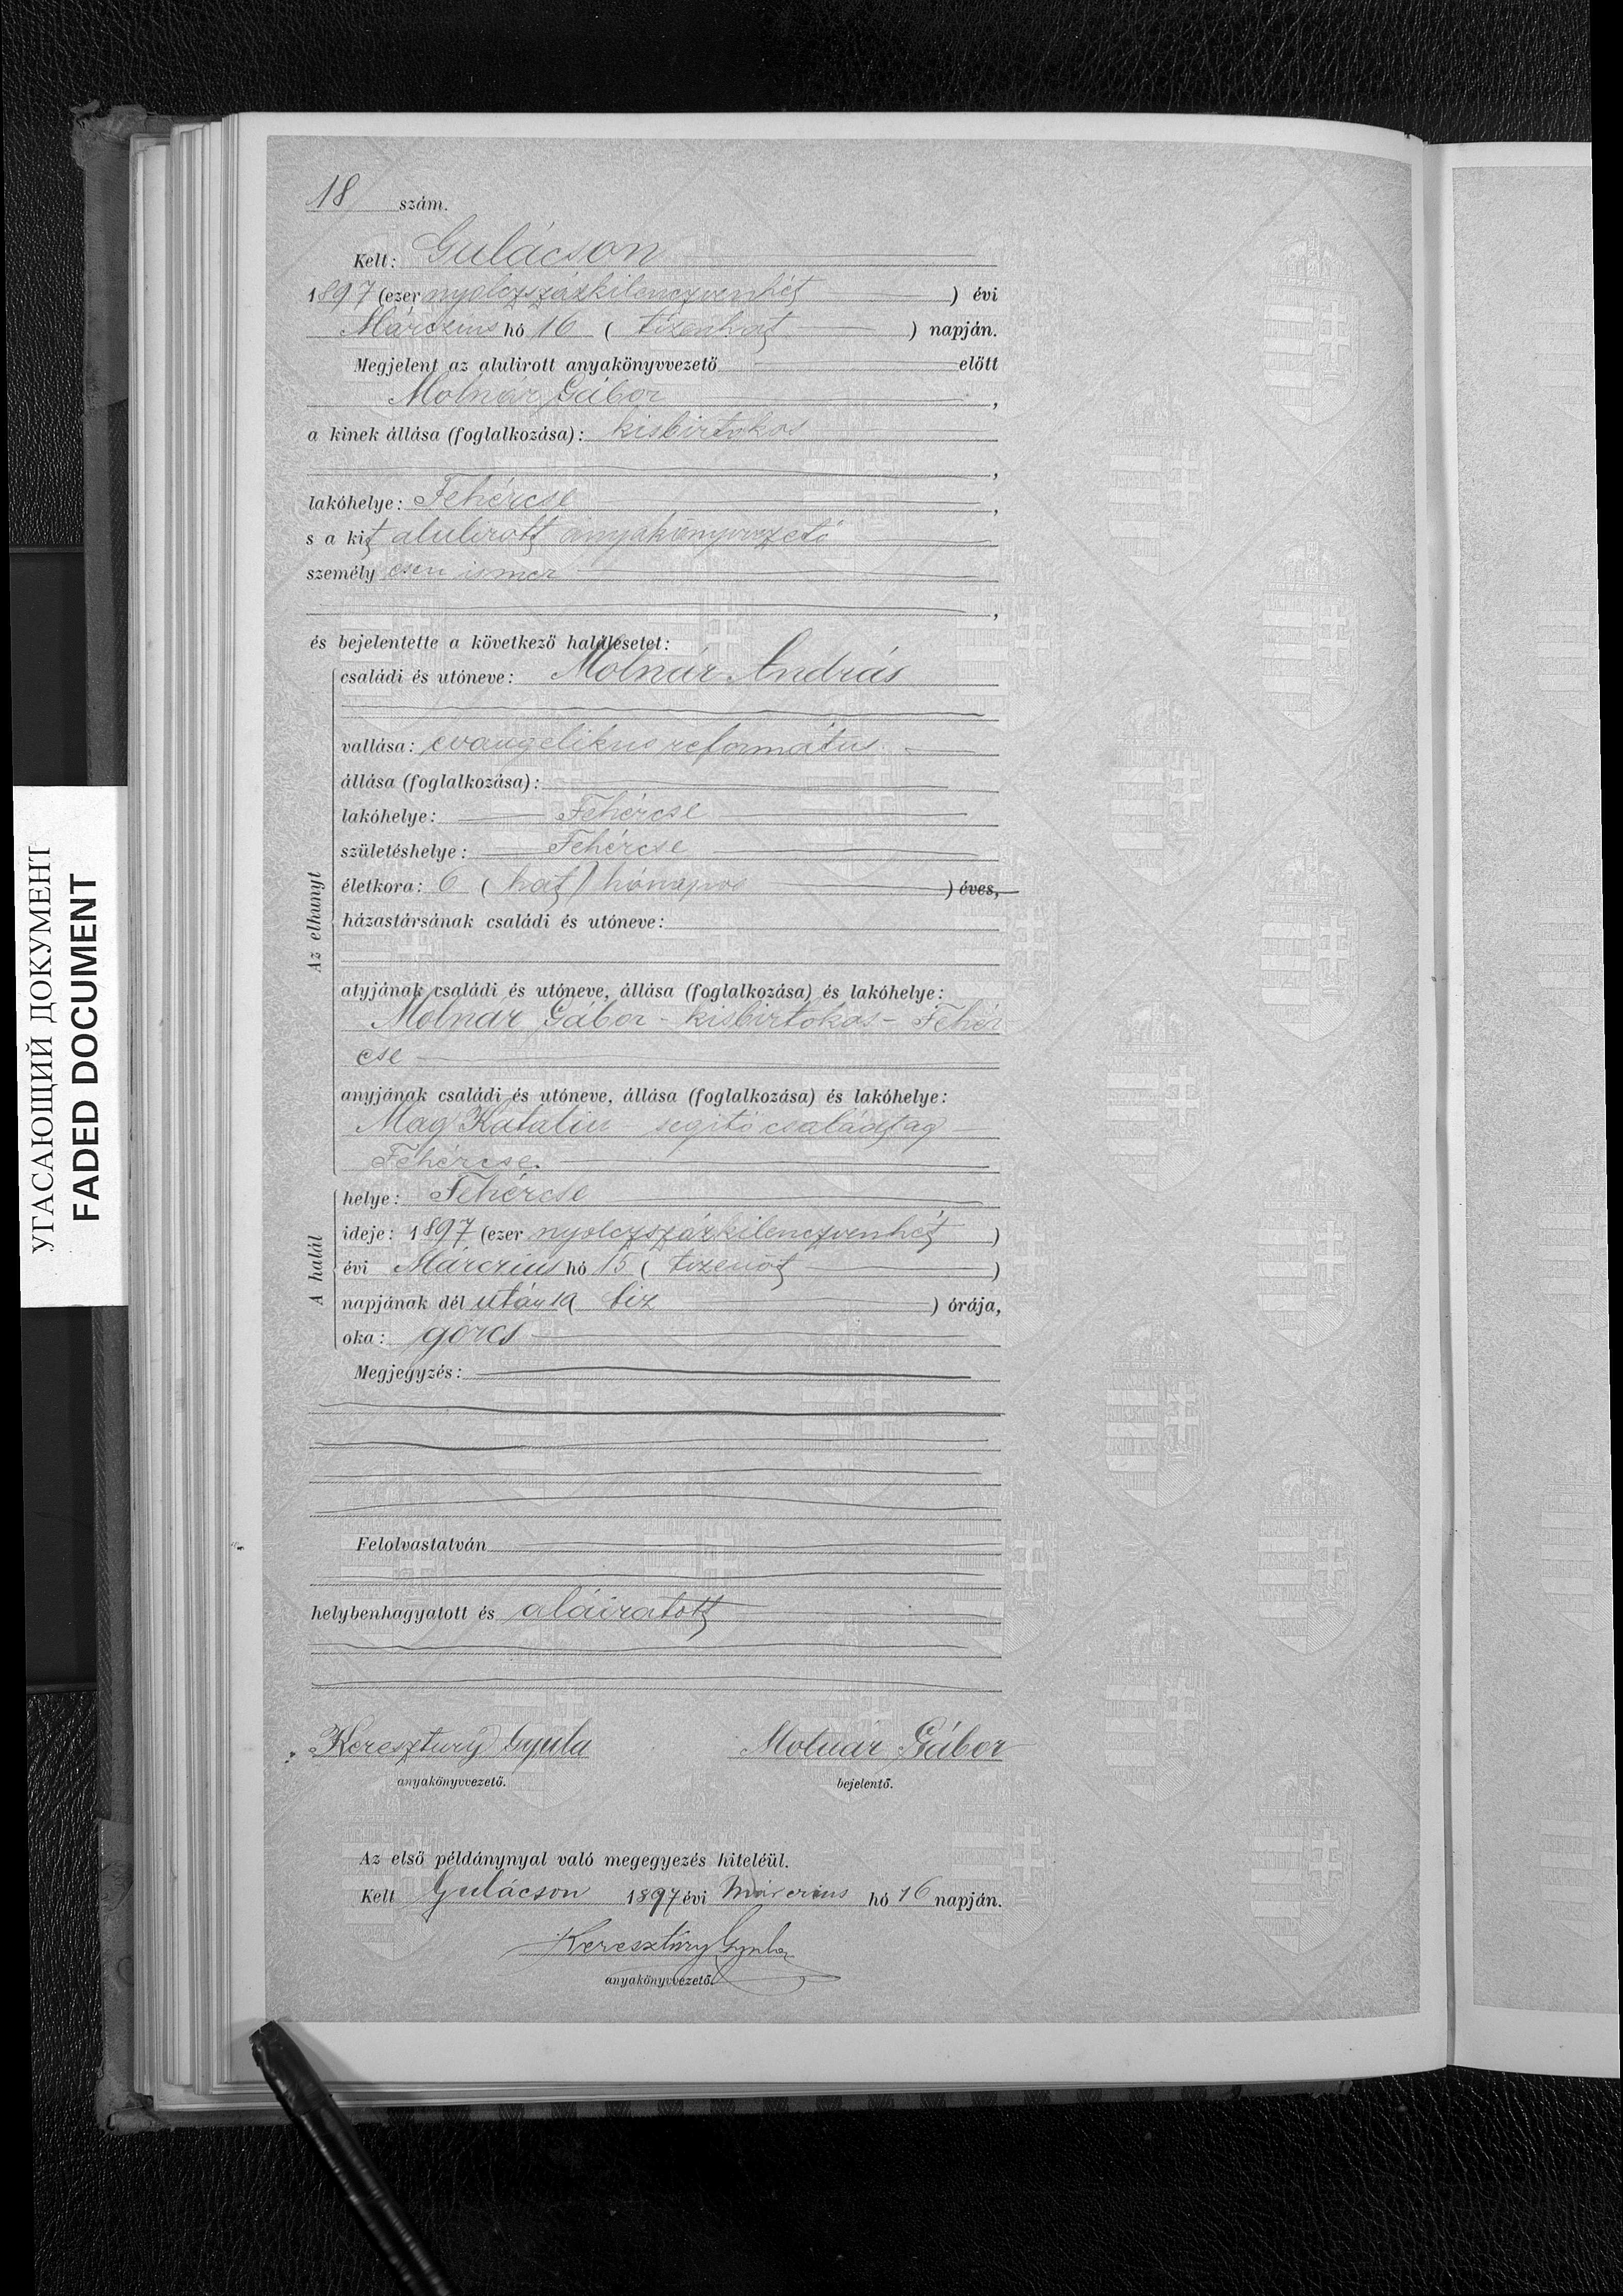 18 szám.
Kelt: Gulácson
1897 (ezer nyolczszázkilenczvenhét) évi
Márczius hó 16 ( tizenhat ) napján.
Megjelent az alulirott anyakönyvvezető előtt
Molnár Gábor,
a kinek állása (foglalkozása): kisbirtokos
,
lakóhelye: Fehércse,
s a kit alulirott anyakönyvvezető
személyesen ismer
,
és bejelentette a következő halálesetet:
családi és utóneve: Molnár András
vallása: evangelikus református
állása (foglalkozása):
lakóhelye: Fehércse
születéshelye: Fehércse
életkora: 6 ( hat ) hónapos ) éves,
házastársának családi és utóneve:
atyjának családi és utóneve, állása (foglalkozása) és lakóhelye:
Molnár Gábor - kisbirtokos - Fehér
cse
anyjának családi és utóneve, állása (foglalkozása) és lakóhelye:
Mag Katalin - segitő családtag
Fehércse.
Az elhunyt
helye: Fehércse
ideje: 1897 (ezer nyolczszázkilenczvenhét )
évi Márczius hó 15 ( tizenöt )
napjának dél után tiz ) órája,
oka: görcs
A halál
Megjegyzés:
Felolvastatván
helybenhagyatott és aláiratott
Keresztury Gyula Molnár Gábor
anyakönyvvezető. bejelentő.
Az első példánynyal való megegyezés hiteléül.
Kelt Gulácson 1897 évi Márczius hó 16 napján.
Keresztúry Gyula
anyakönyvvezető.
УГАСАЮЩИЙ ДОКУМЕНТ
FADED DOCUMENT